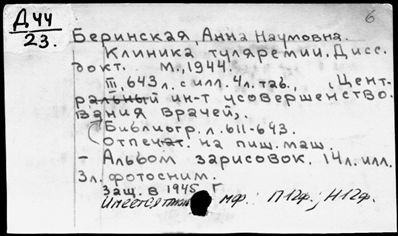 Д 44
23.
6
Беринская, Анна Наумовна.
Клиника туляремии. Дисс.
докт. М., 1944.
III, 643 л. с илл. 4 л. таб., (Цент-
ральный ин-т усовершенство-
вания врачей).
Библиогр. л. 611-643.
Отпечат. на пиш. маш.
- Альбом зарисовок. 14 л. илл.
3 л. фотосним.
Защ. в 1945 г.
Имеется мф.: П12ф.; Н12ф.